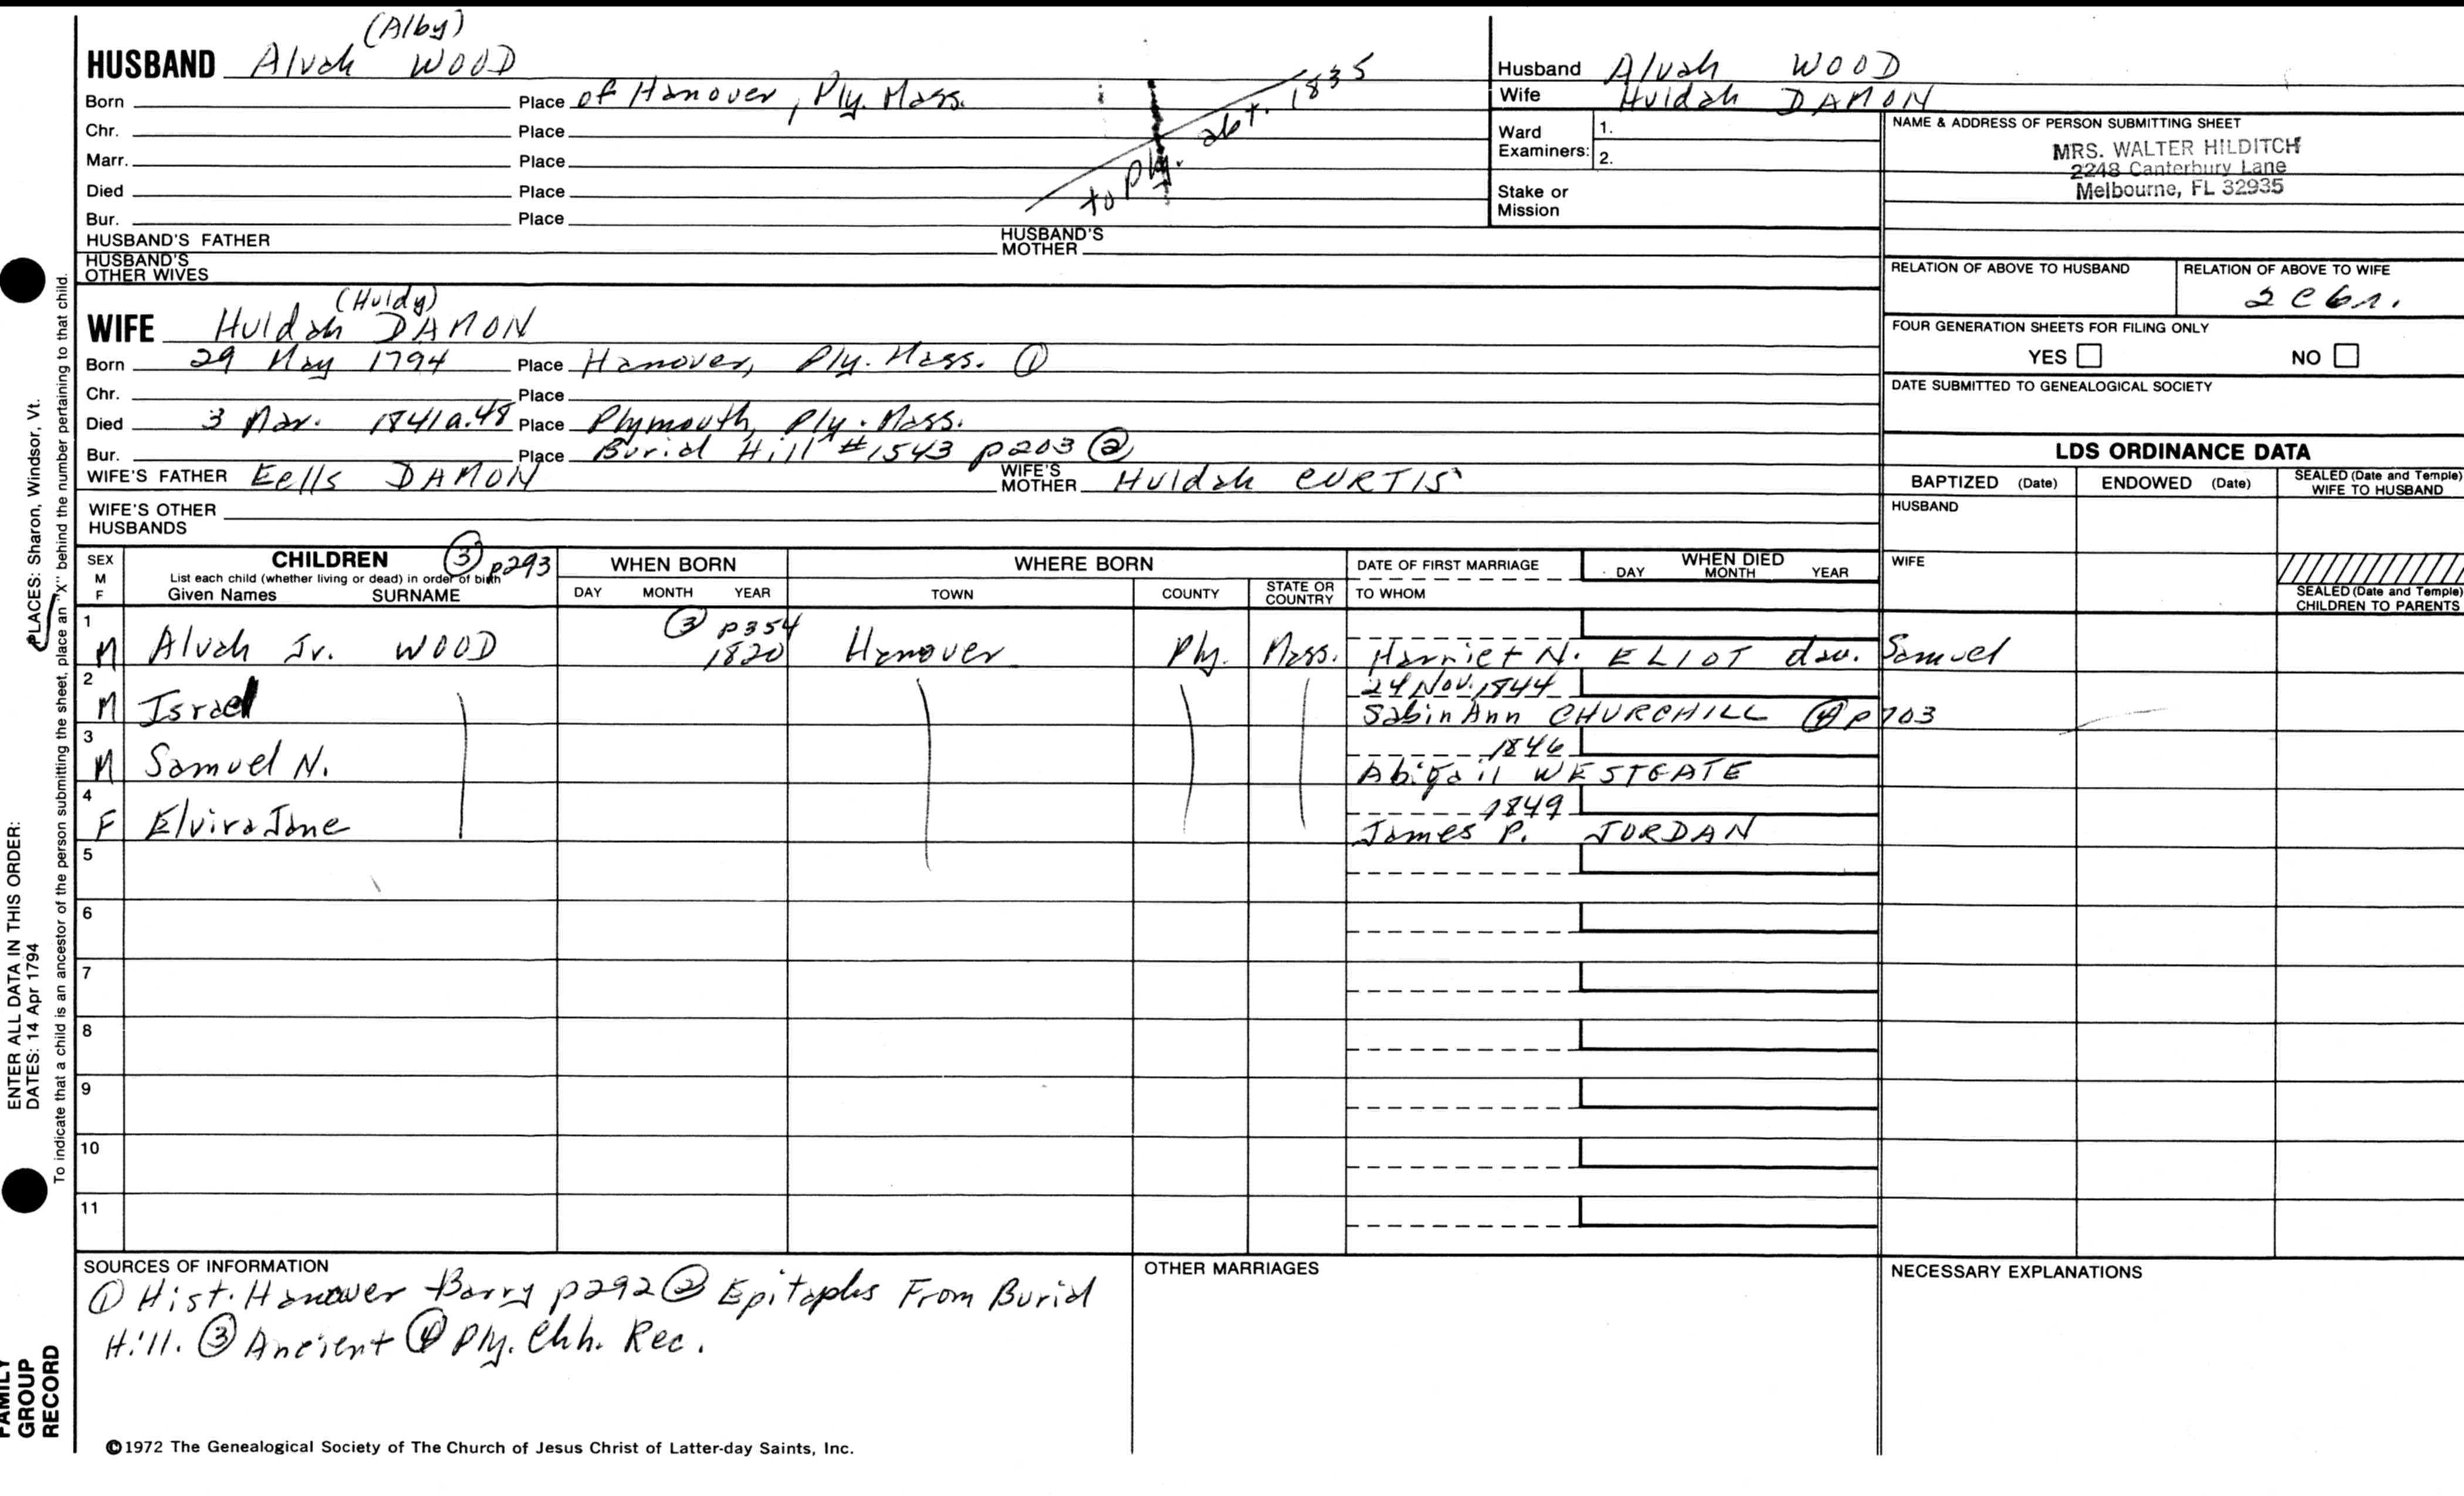 (Alby)
HUSBAND Alvah WOOD
Born Place of Hanover, Ply. Mass.
Chr. Place
Marr. Place
Died Place
Bur. Place
to Ply. abt. 1835
HUSBAND'S FATHER HUSBAND'S MOTHER
HUSBAND'S OTHER WIVES
Husband Alvah WOOD
Wife Huldah DAMON
Ward Examiners: 1.
2.
Stake or Mission
NAME & ADDRESS OF PERSON SUBMITTING SHEET
MRS. WALTER HILDITCH
2248 Canterbury Lane
Melbourne, FL 32935
RELATION OF ABOVE TO HUSBAND RELATION OF ABOVE TO WIFE
FOUR GENERATION SHEETS FOR FILING ONLY
YES NO
DATE SUBMITTED TO GENEALOGICAL SOCIETY
(Huldy)
WIFE Huldah DAMON
Born 29 May 1794 Place Hanover, Ply. Mass. ①
Chr. Place
Died 3 Mar. 1841 a.48 Place Plymouth, Ply. Mass.
Bur. Place Burial Hill #1543 p203 ②
WIFE'S FATHER Eells DAMON WIFE'S MOTHER Huldah CURTIS
WIFE'S OTHER HUSBANDS
LDS ORDINANCE DATA
BAPTIZED (Date) ENDOWED (Date) SEALED (Date and Temple) WIFE TO HUSBAND
HUSBAND
WIFE
SEALED (Date and Temple) CHILDREN TO PARENTS
SEX M F
CHILDREN ③ p293
List each child (whether living or dead) in order of birth
Given Names SURNAME
WHEN BORN
DAY MONTH YEAR
WHERE BORN
TOWN COUNTY STATE OR COUNTRY
DATE OF FIRST MARRIAGE
TO WHOM
WHEN DIED
DAY MONTH YEAR
1 ③ p354
M Alvah Jr. WOOD 1820 Hanover Ply. Mass. Harriet N. ELIOT dau. Samuel
2 24 Nov. 1844
M Israel Sabin Ann CHURCHILL ④ p703
3 1846
M Samuel N. Abigail WESTGATE
4 1849
F Elvira Jane James P. JORDAN
5
6
7
8
9
10
11
SOURCES OF INFORMATION
① Hist. Hanover Barry p292 ② Epitaphs From Burial
Hill. ③ Ancient ④ Ply. Chh. Rec.
OTHER MARRIAGES
NECESSARY EXPLANATIONS
©1972 The Genealogical Society of The Church of Jesus Christ of Latter-day Saints, Inc.
FAMILY GROUP RECORD
ENTER ALL DATA IN THIS ORDER:
DATES: 14 Apr 1794
PLACES: Sharon, Windsor, Vt.
To indicate that a child is an ancestor of the person submitting the sheet, place an "X" behind the number pertaining to that child.